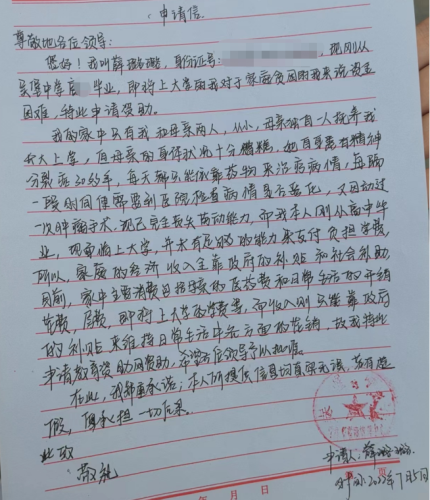 申请信
尊敬地各位领导:
您好!我叫薛 身份证号: 现刚从
中学 毕业,即将上大学而我对于家庭贫困的我来说资金
困难,特此申请资助。
我的家中只有我和母亲两人,从小,母亲独自一人抚养我
长大上学,但母亲的身体状况十分糟糕,她自身患有精神
分裂症30余年,每天都只能依靠药物来治疗病情,每隔
一段时间便需要到医院检查病情是否恶化,又因动过
一次肿瘤手术,现已完全丧失劳动能力,而我本人刚从高中毕
业,现面临上大学,并未有足够的能力来支付负担学费,
所以,家庭的经济收入全靠政府的补贴和社会补助,
目前,家中主要消费包括母亲的医药费和日常生活的开销
花费,房费,即将上大学的学费等,而收入则只能靠政府
的补贴来维持日常生活中各方面的花销,故我特此
申请教育资助问费助,希望各位领导予以批准。
在此,我郑重承诺:本人所提供信息均真实无误,若有虚
假,便承担一切后果。
此致
敬礼
申请人:薛
时间:2023年7月5日
年 月 日